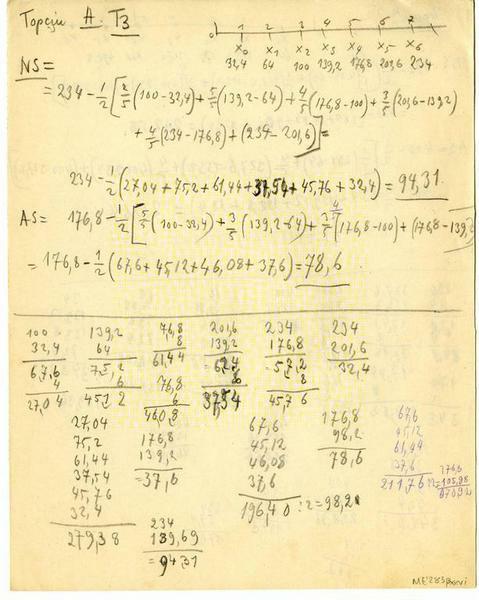 Topciu A. T3
0 1 2 3 4 5 6 7
x0 x1 x2 x3 x4 x5 x6
32,4 64 100 139,2 176,8 201,6 234
NS=
= 234 - 1/2 [2/5 (100-32,4) + 5/5 (139,2-64) + 4/5 (176,8-100) + 3/5 (201,6-139,2)
+ 4/5 (234-176,8) + (234-201,6)] =
234 - 1/2 (27,04 + 75,2 + 61,44 + 37,54 + 45,76 + 32,4) = 94,31.
AS= 176,8 - 1/2 [5/5 (100-32,4) + 3/5 (139,2-64) + 3/5 (176,8-100) + (176,8-139,2)
= 176,8 - 1/2 (67,6 + 45,12 + 46,08 + 37,6) = 78,6
100 139,2 76,8 201,6 234 234
32,4 64 8 139,2 176,8 201,6
67,6 75,2 61,44 62,4 =57,2 32,4
4 6 76,8 8
27,04 451 2 6 37,54 45,7 6
460,8
27,04 67,6 176,8 67,6
75,2 176,8 45,12 98,2 45,12
61,44 139,2 46,08 78,6 61,44
37,54 =37,6 37,6 37,6
45,76 196,40 :2=98,20 211,76
32,4 176,8
279,38 234
139,69
=94,31
ME283